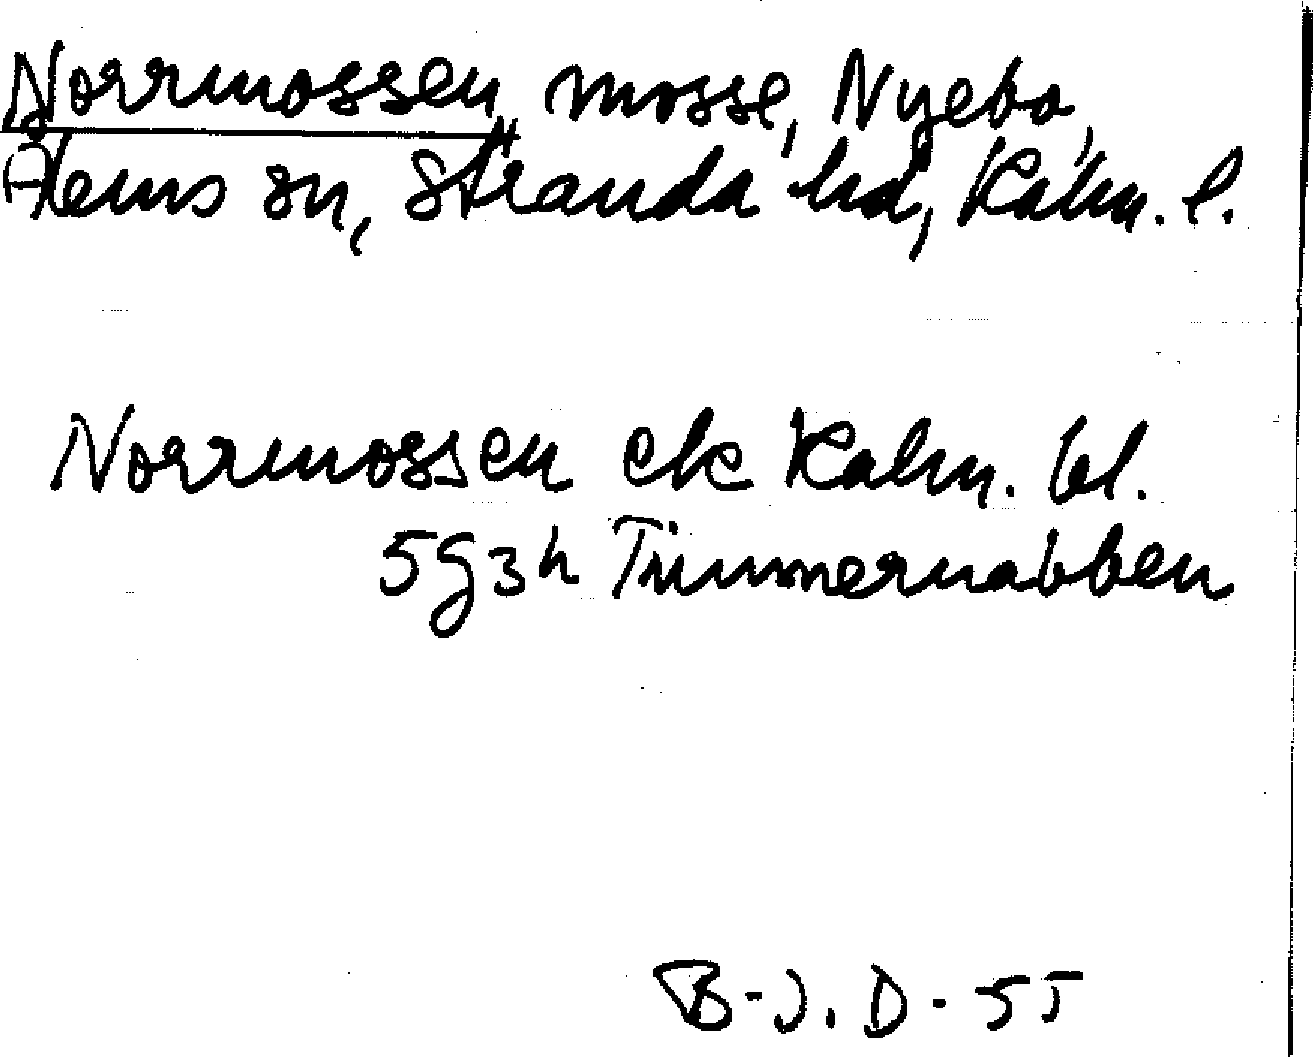 Norrmossen, mosse, Nyebo,
Ålems sn, Stranda hd, Kalm. l.
Norrmossen ek Kalm. bl.
5g3h Timmernabben
B-J. D - 55